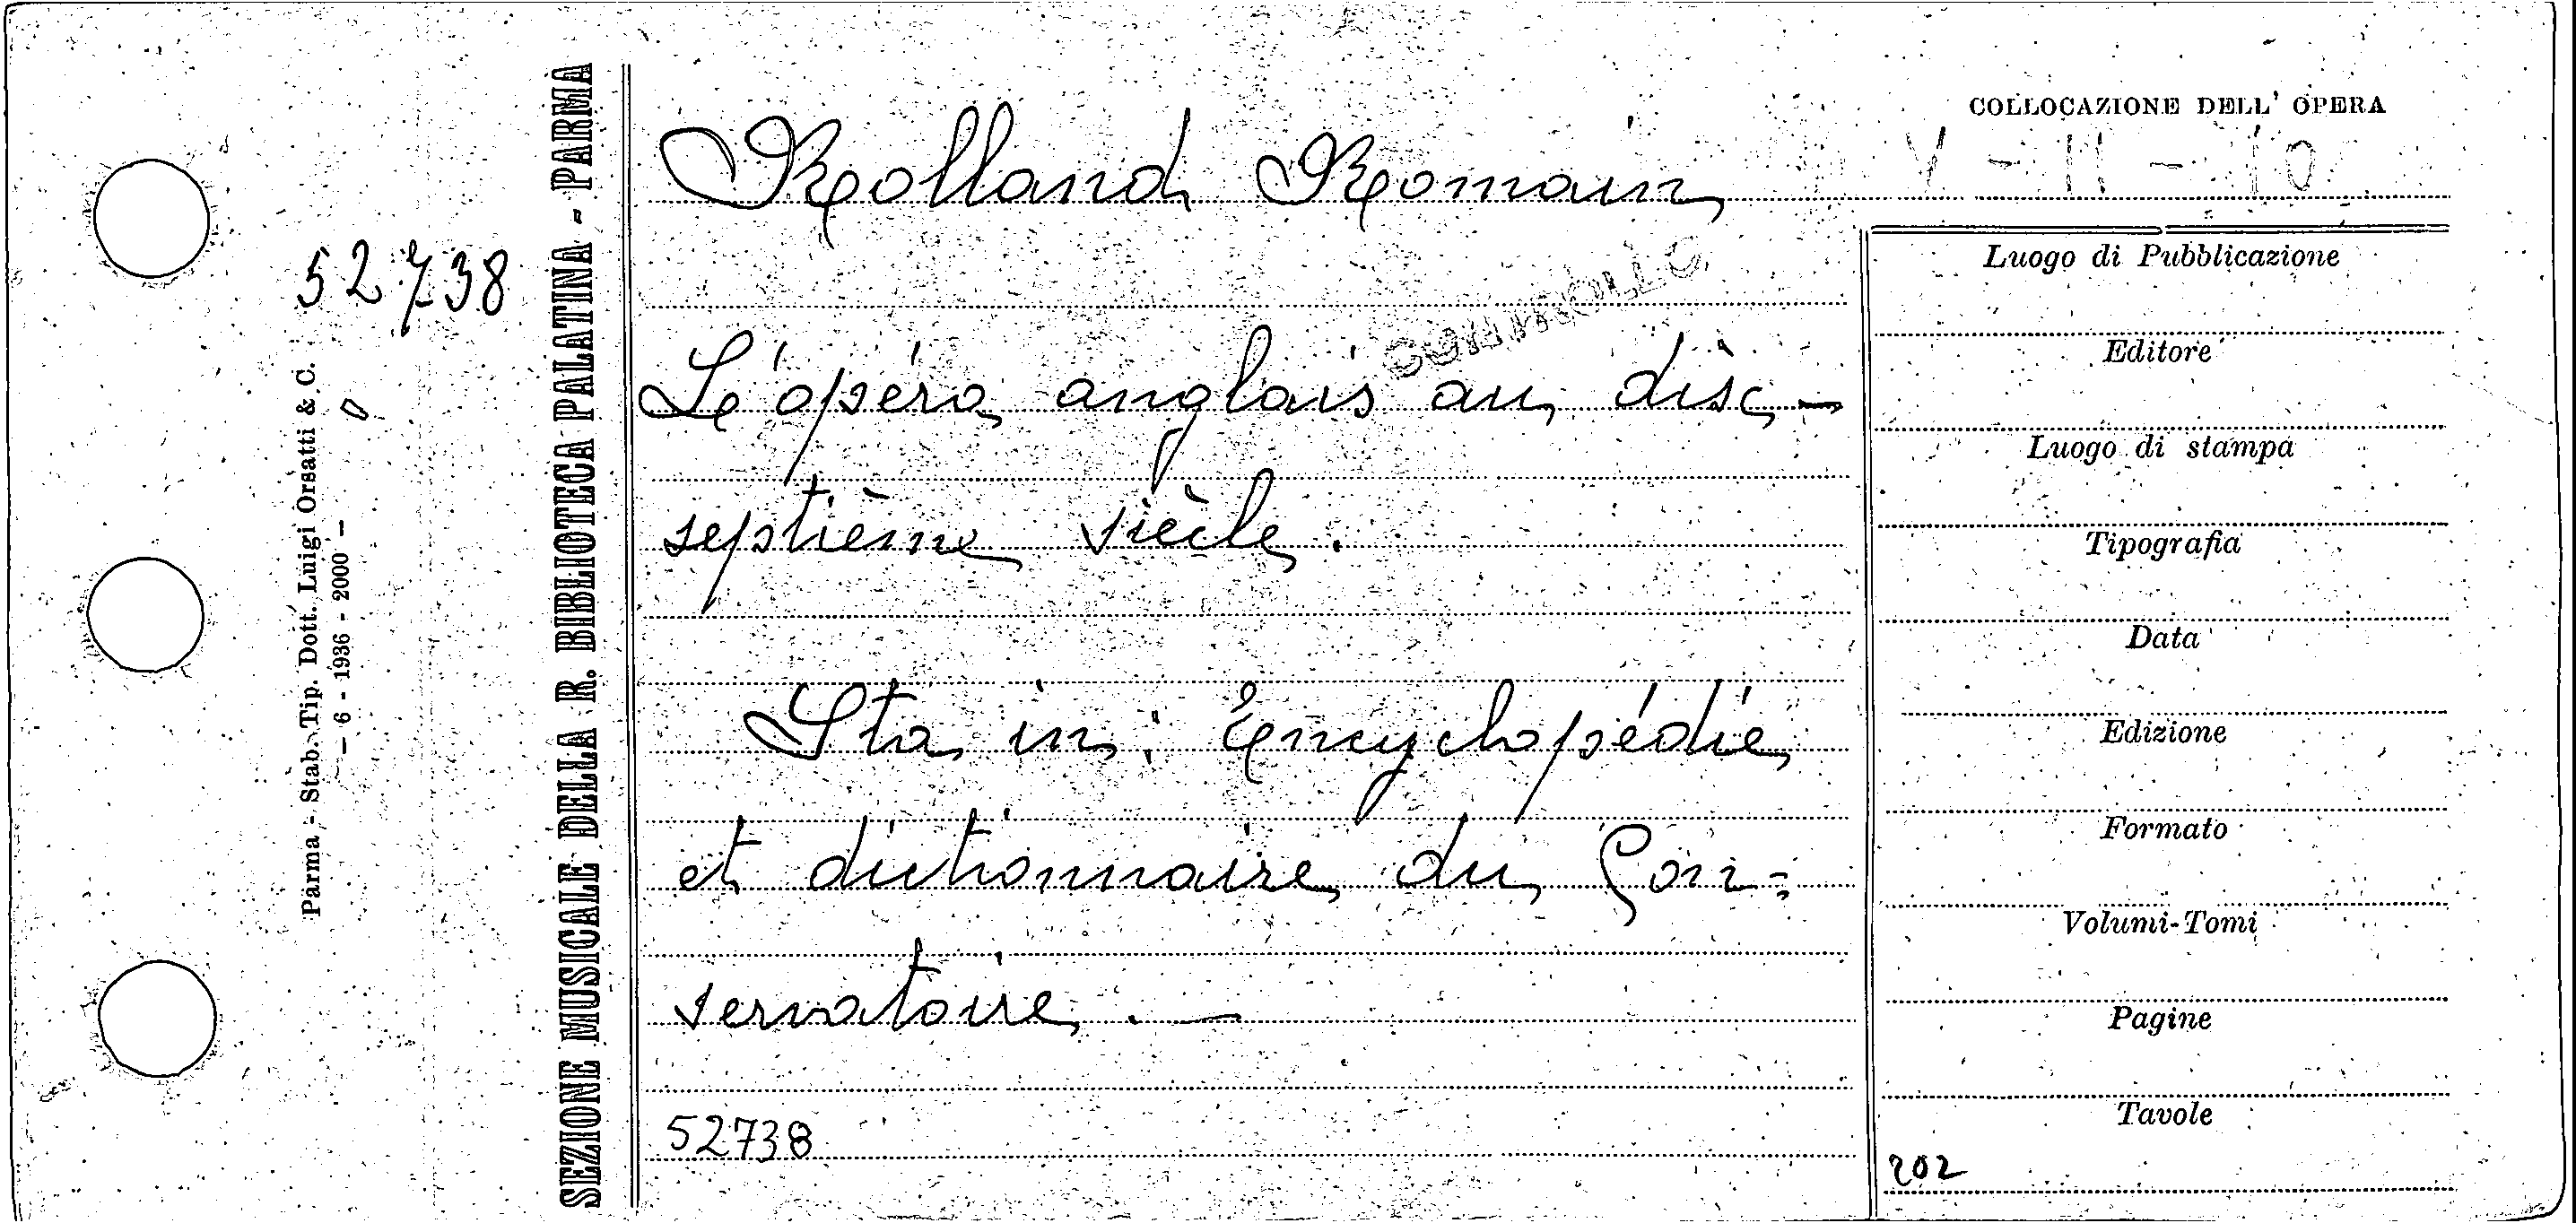 Rolland Romain
COLLOCAZIONE DELL' OPERA
V - II - 10
CONTROLLO
L'opéra anglais au disc-
septième siècle.
Sta in: Encyclopédie
et dictionnaire du Con-
servatoire. —
52738
Luogo di Pubblicazione
Editore
Luogo di stampa
Tipografia
Data
Edizione
Formato
Volumi-Tomi
Pagine
Tavole
202
52738
SEZIONE MUSICALE DELLA R. BIBLIOTECA PALATINA - PARMA
Parma - Stab. Tip. Dott. Luigi Orsatti & C.
— 6 - 1936 - 2000 —